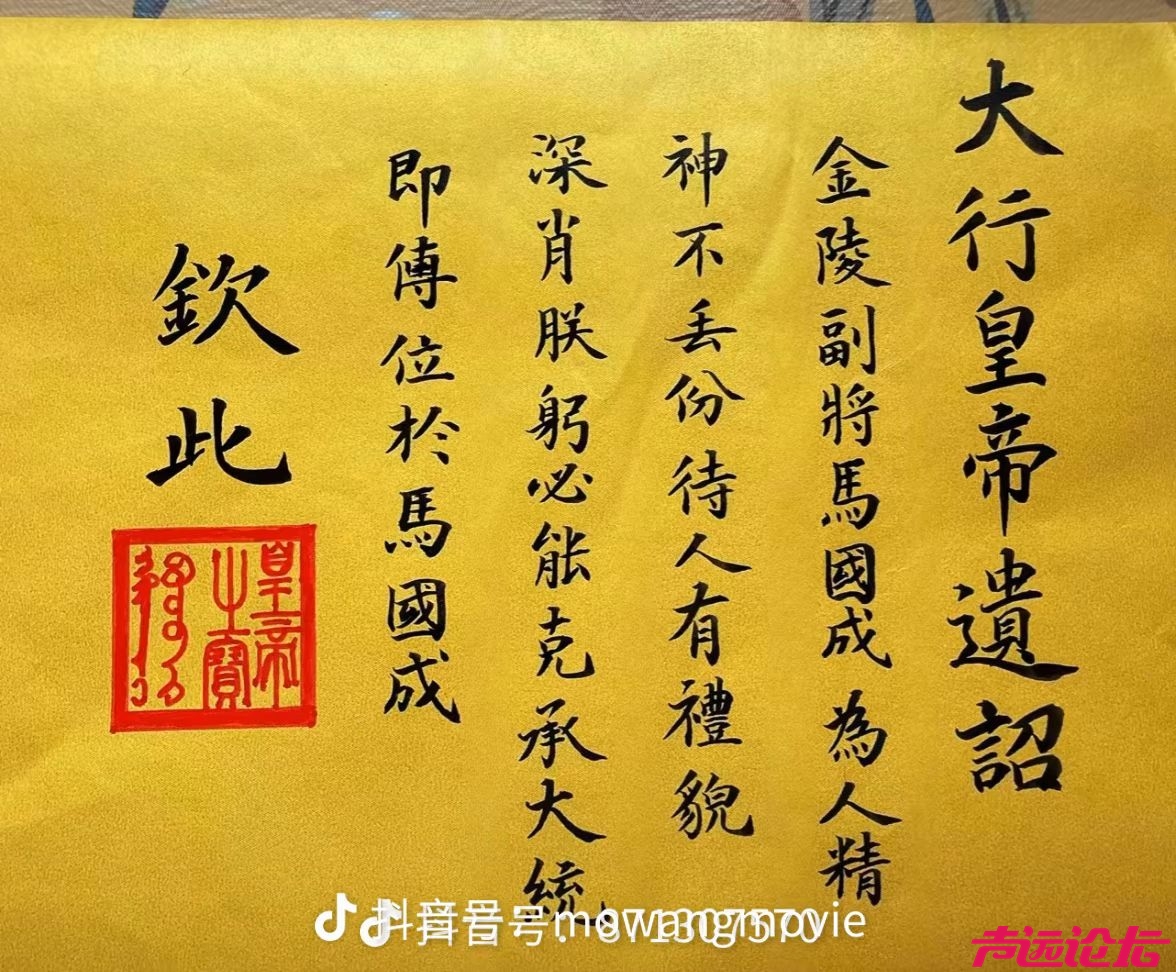 大行皇帝遺詔
金陵副將馬國成為人精
神不丟份待人有禮貌
深肖朕躬必能克承大統
即傳位於馬國成
欽此
皇帝
之寶
抖音号:
声远论坛